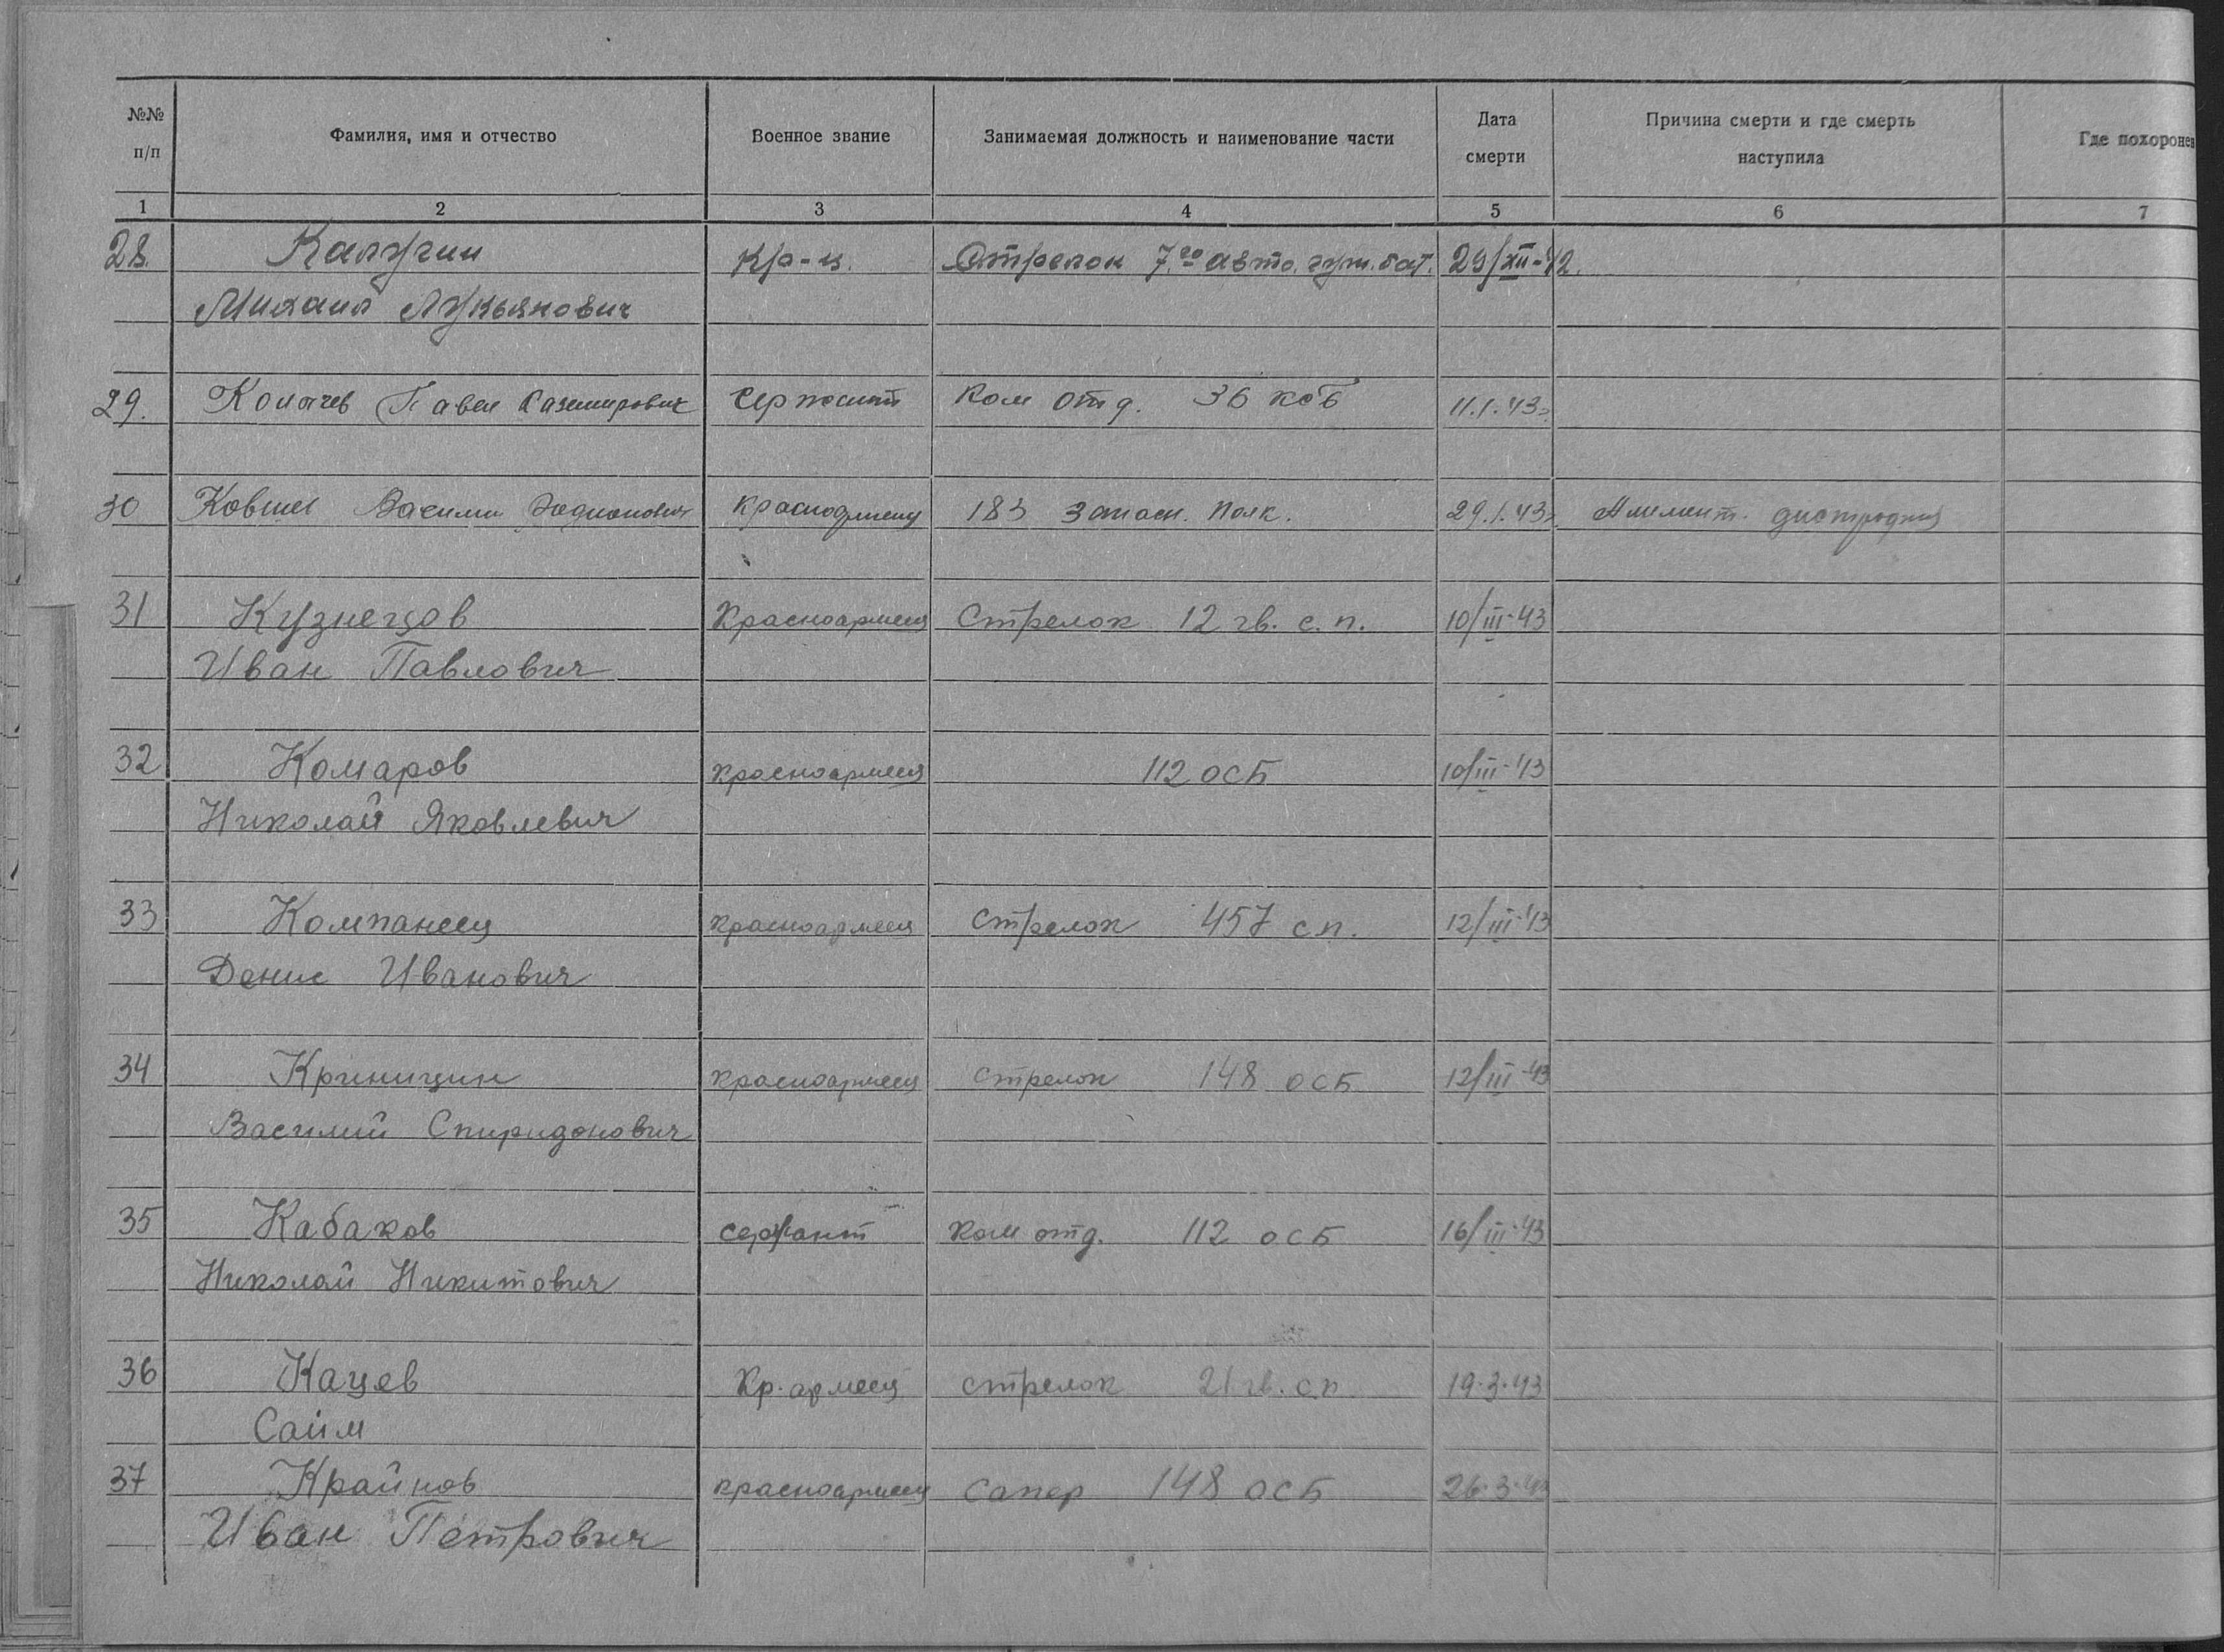 №№ п/п
Фамилия, имя и отчество
Военное звание
Занимаемая должность и наименование части
Дата смерти
Причина смерти и где смерть наступила
Где похоронен
1 2 3 4 5 6 7
28. Калугин Кр-ц. Стрелок 7го авто. гуж. бат. 29/XII-42.
Михаил Лукьянович
29. Павел Каземирович Сержант Ком отд. 36 11.1.43г.
30 Василий Родионович красноармеец 183 Запасн. полк. 29.1.43г. Алимент. дистрофия
31 Кузнецов Красноармеец Стрелок 12 гв. с. п. 10/III-43
Иван Павлович
32 Комаров красноармеец 112 ОСБ 10/III-43
Николай Яковлевич
33 Компанеец красноармеец стрелок 457 с.п. 12/III-43
Денис Иванович
34 Криницин красноармеец стрелок 148 ОСБ 12/III-43
Василий Спиридонович
35 Кабаков сержант ком отд. 112 ОСБ 16/III-43
Николай Никитович
36 Кацев Кр. армеец стрелок 21 гв. с.п. 19.3.43
Саим
37 Крайнов красноармеец сапер 148 ОСБ 26.3.43
Иван Петрович